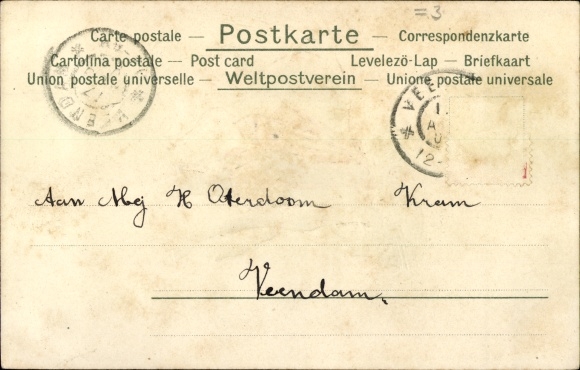 =3
Carte postale — Postkarte — Correspondenzkarte
Cartolina postale — Post card Levelezö-Lap — Briefkaart
Union postale universelle — Weltpostverein — Unione postale universale
VEENDA
VEE
12-
Aan Mej H Oterdoom Kram
Veendam.